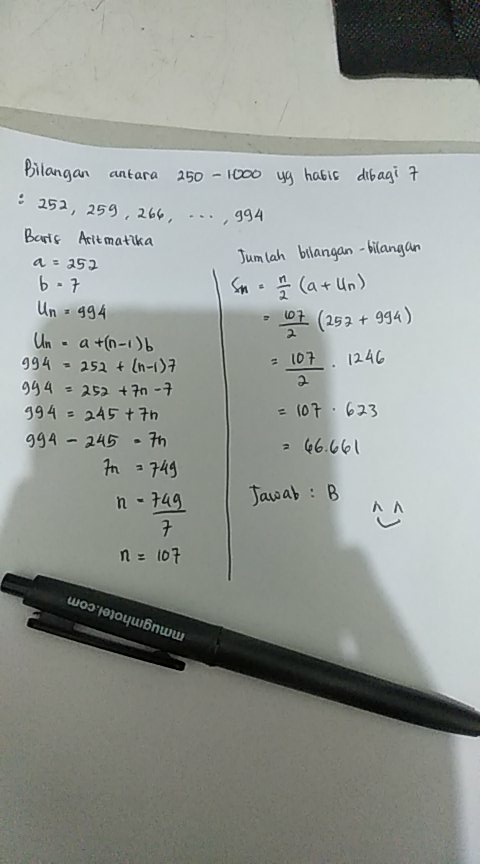 Bilangan antara 250 - 1000 yg habis dibagi 7
: 252, 259, 266, ..., 994
Baris Aritmatika
a = 252
b = 7
Un = 994
Un = a + (n-1)b
994 = 252 + (n-1)7
994 = 252 + 7n - 7
994 = 245 + 7n
994 - 245 = 7n
7n = 749
n = 749/7
n = 107
Jumlah bilangan-bilangan
Sn = n/2 (a + Un)
= 107/2 (252 + 994)
= 107/2 . 1246
= 107 . 623
= 66.661
Jawab : B
mmugmhotel.com